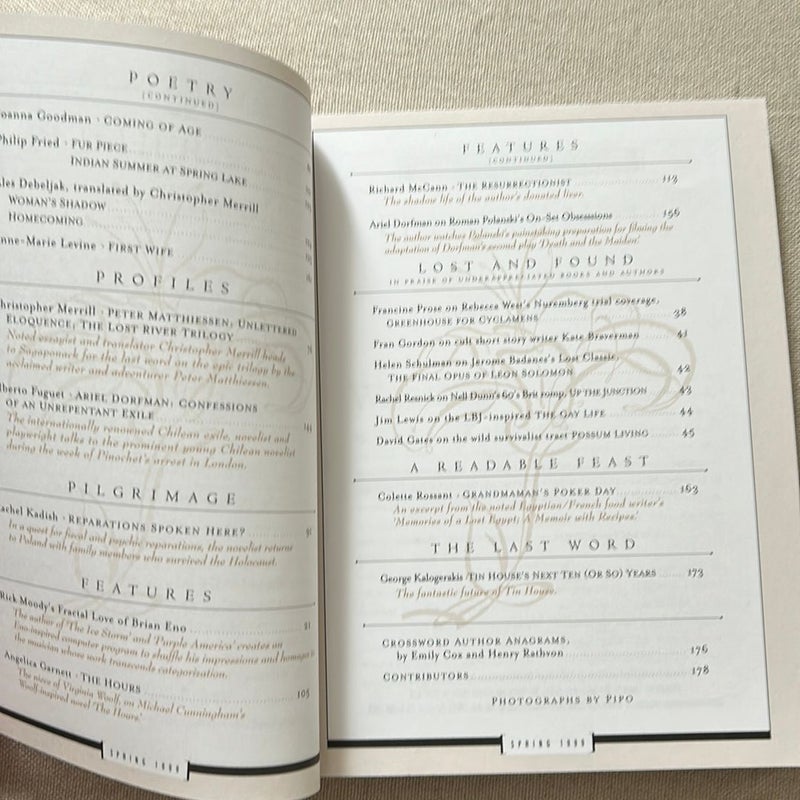 POETRY
[CONTINUED]
oanna Goodman · COMING OF AGE
Philip Fried · FUR PIECE
INDIAN SUMMER AT SPRING LAKE
les Debeljak, translated by Christopher Merrill
WOMAN'S SHADOW
HOMECOMING
nne-Marie Levine · FIRST WIFE
PROFILES
hristopher Merrill · PETER MATTHIESSEN, UNLETTERED
ELOQUENCE; THE LOST RIVER TRILOGY
Noted essayist and translator Christopher Merrill heads
to Sagaponack for the last word on the epic trilogy by the
acclaimed writer and adventurer Peter Matthiessen.
lberto Fuguet · ARIEL DORFMAN: CONFESSIONS
OF AN UNREPENTANT EXILE 144
The internationally renowned Chilean exile, novelist and
playwright talks to the prominent young Chilean novelist
during the week of Pinochet's arrest in London.
PILGRIMAGE
achel Kadish · REPARATIONS SPOKEN HERE?
In a quest for fiscal and psychic reparations, the novelist returns
to Poland with family members who survived the Holocaust.
FEATURES
Rick Moody's Fractal Love of Brian Eno
The author of 'The Ice Storm' and 'Purple America' creates an
Eno-inspired computer program to shuffle his impressions and homages to
the musician whose work transcends categorization.
Angelica Garnett · THE HOURS 105
The niece of Virginia Woolf, on Michael Cunningham's
Woolf-inspired novel 'The Hours.'
SPRING 1999
FEATURES
[CONTINUED]
Richard McCann · THE RESURRECTIONIST 113
The shadow life of the author's donated liver.
Ariel Dorfman on Roman Polanski's On-Set Obsessions 156
The author watches Polanski's painstaking preparation for filming the
adaptation of Dorfman's second play 'Death and the Maiden.'
LOST AND FOUND
IN PRAISE OF UNDERAPPRECIATED BOOKS AND AUTHORS
Francine Prose on Rebecca West's Nuremberg trial coverage,
GREENHOUSE FOR CYCLAMENS 38
Fran Gordon on cult short story writer Kate Braverman 41
Helen Schulman on Jerome Badanes's Lost Classic,
THE FINAL OPUS OF LEON SOLOMON 42
Rachel Resnick on Nell Dunn's 60's Brit romp, UP THE JUNCTION 43
Jim Lewis on the LBJ-inspired THE GAY LIFE 44
David Gates on the wild survivalist tract POSSUM LIVING 45
A READABLE FEAST
Colette Rossant · GRANDMAMAN'S POKER DAY 163
An excerpt from the noted Egyptian/French food writer's
'Memories of a Lost Egypt: A Memoir with Recipes.'
THE LAST WORD
George Kalogerakis TIN HOUSE'S NEXT TEN (OR SO) YEARS 173
The fantastic future of Tin House.
CROSSWORD AUTHOR ANAGRAMS,
by Emily Cox and Henry Rathvon 176
CONTRIBUTORS 178
PHOTOGRAPHS BY PIPO
SPRING 1999